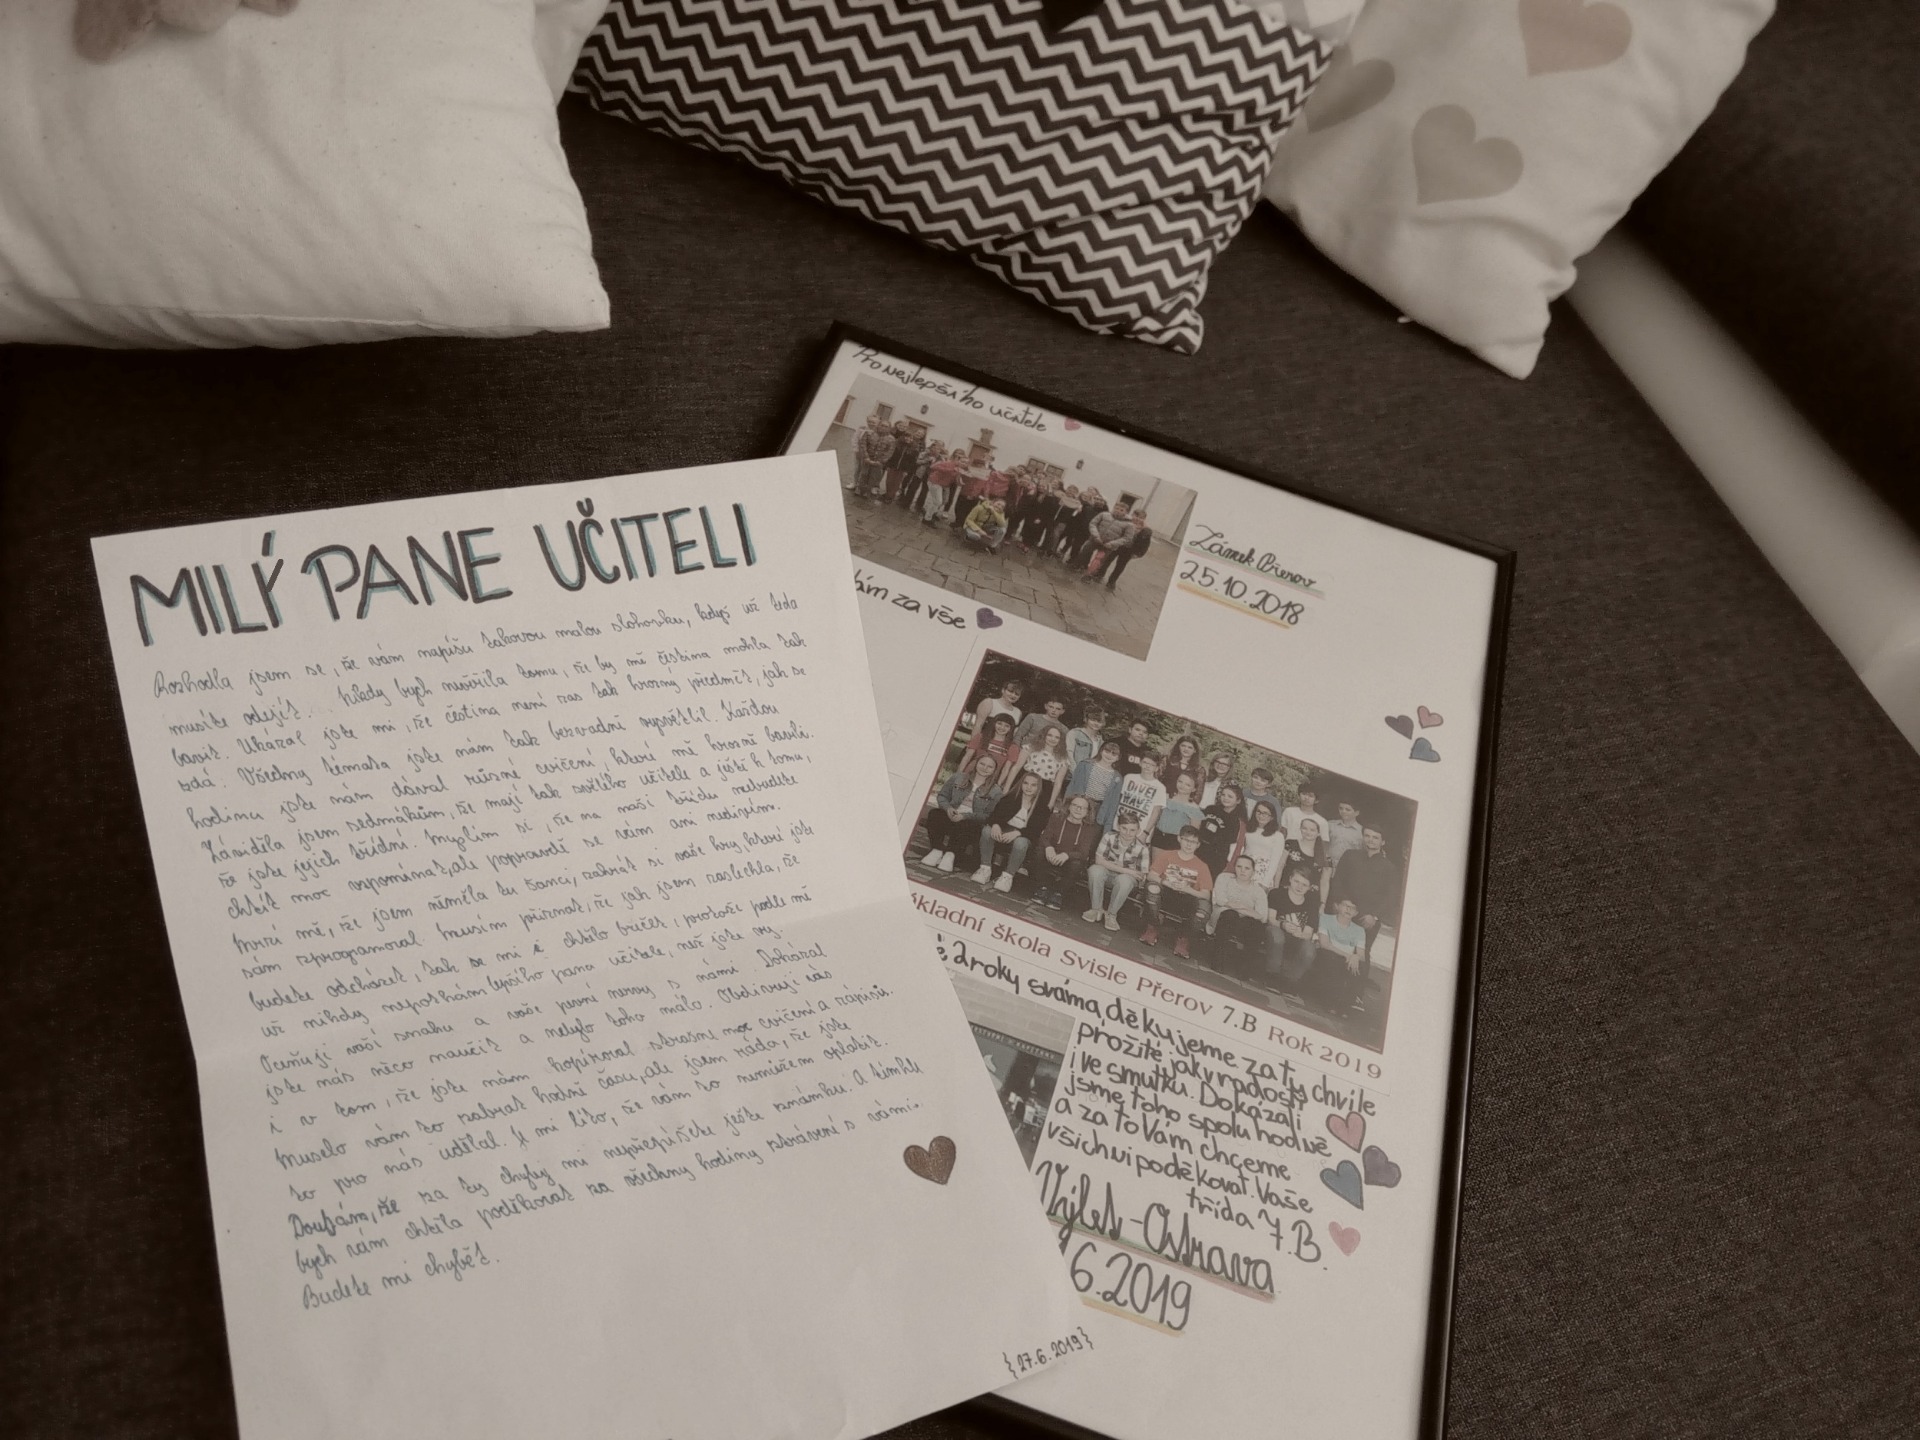 MILÝ PANE UČITELI
Rozhodla jsem se, že vám napíšu takovou malou slohovku, když už teda
musíte odejít. Nikdy bych nevěřila tomu, že by mě čeština mohla tak
bavit. Ukázal jste mi, že čeština není zas tak hrozný předmět, jak se
zdá. Všechny témata jste nám tak bezvadně vysvětlil. Každou
hodinu jste nám dával různé cvičení, které mě hrozně bavili.
Záviděla jsem sedmákům, že mají tak světlého učitele a ještě k tomu,
že jste jejich třídní. Myslím si, že na naší třídu nebudete
chtít moc vzpomínat, ale popravdě se vám ani nedivím.
Mrzí mě, že jsem neměla tu šanci, zahrát si vaše hry, které jste
sám zprogramoval. Musím přiznat, že jak jsem zaslechla, že
budete odcházet, tak se mi i chtělo brečet, protože podle mě
už nikdy nepoznám lepšího pana učitele, než jste vy.
Oceňuji vaší snahu a vaše pevné nervy s námi. Dokázal
jste nás něco naučit a nebylo toho málo. Obdivuji vás
i v tom, že jste nám kopíroval strašně moc cvičení a zápisů.
Muselo vám to zabrat hodně času, ale jsem ráda, že jste
to pro nás udělal. Je mi líto, že vám to nemůžem oplatit.
Doufám, že za ty chyby mi nepřepíšete ješte známku. A tímhle
bych vám chtěla poděkovat za všechny hodiny strávení s vámi.
Budete mi chybět.
{27.6.2019}
Pro nejlepšího učitele
Zámek Přerov
25.10.2018
ám za vše
DIVE!
WAVE
kladní škola Svisle Přerov 7.B Rok 2019
é 2 roky s váma, děkujeme za ty chvíle
prožité jak v radosti
i ve smutku. Dokázali
jsme toho spolu hodně
a za to Vám chceme
všichni poděkovat. Vaše
třída 7.B.
Výlet-Ostrava
6.2019